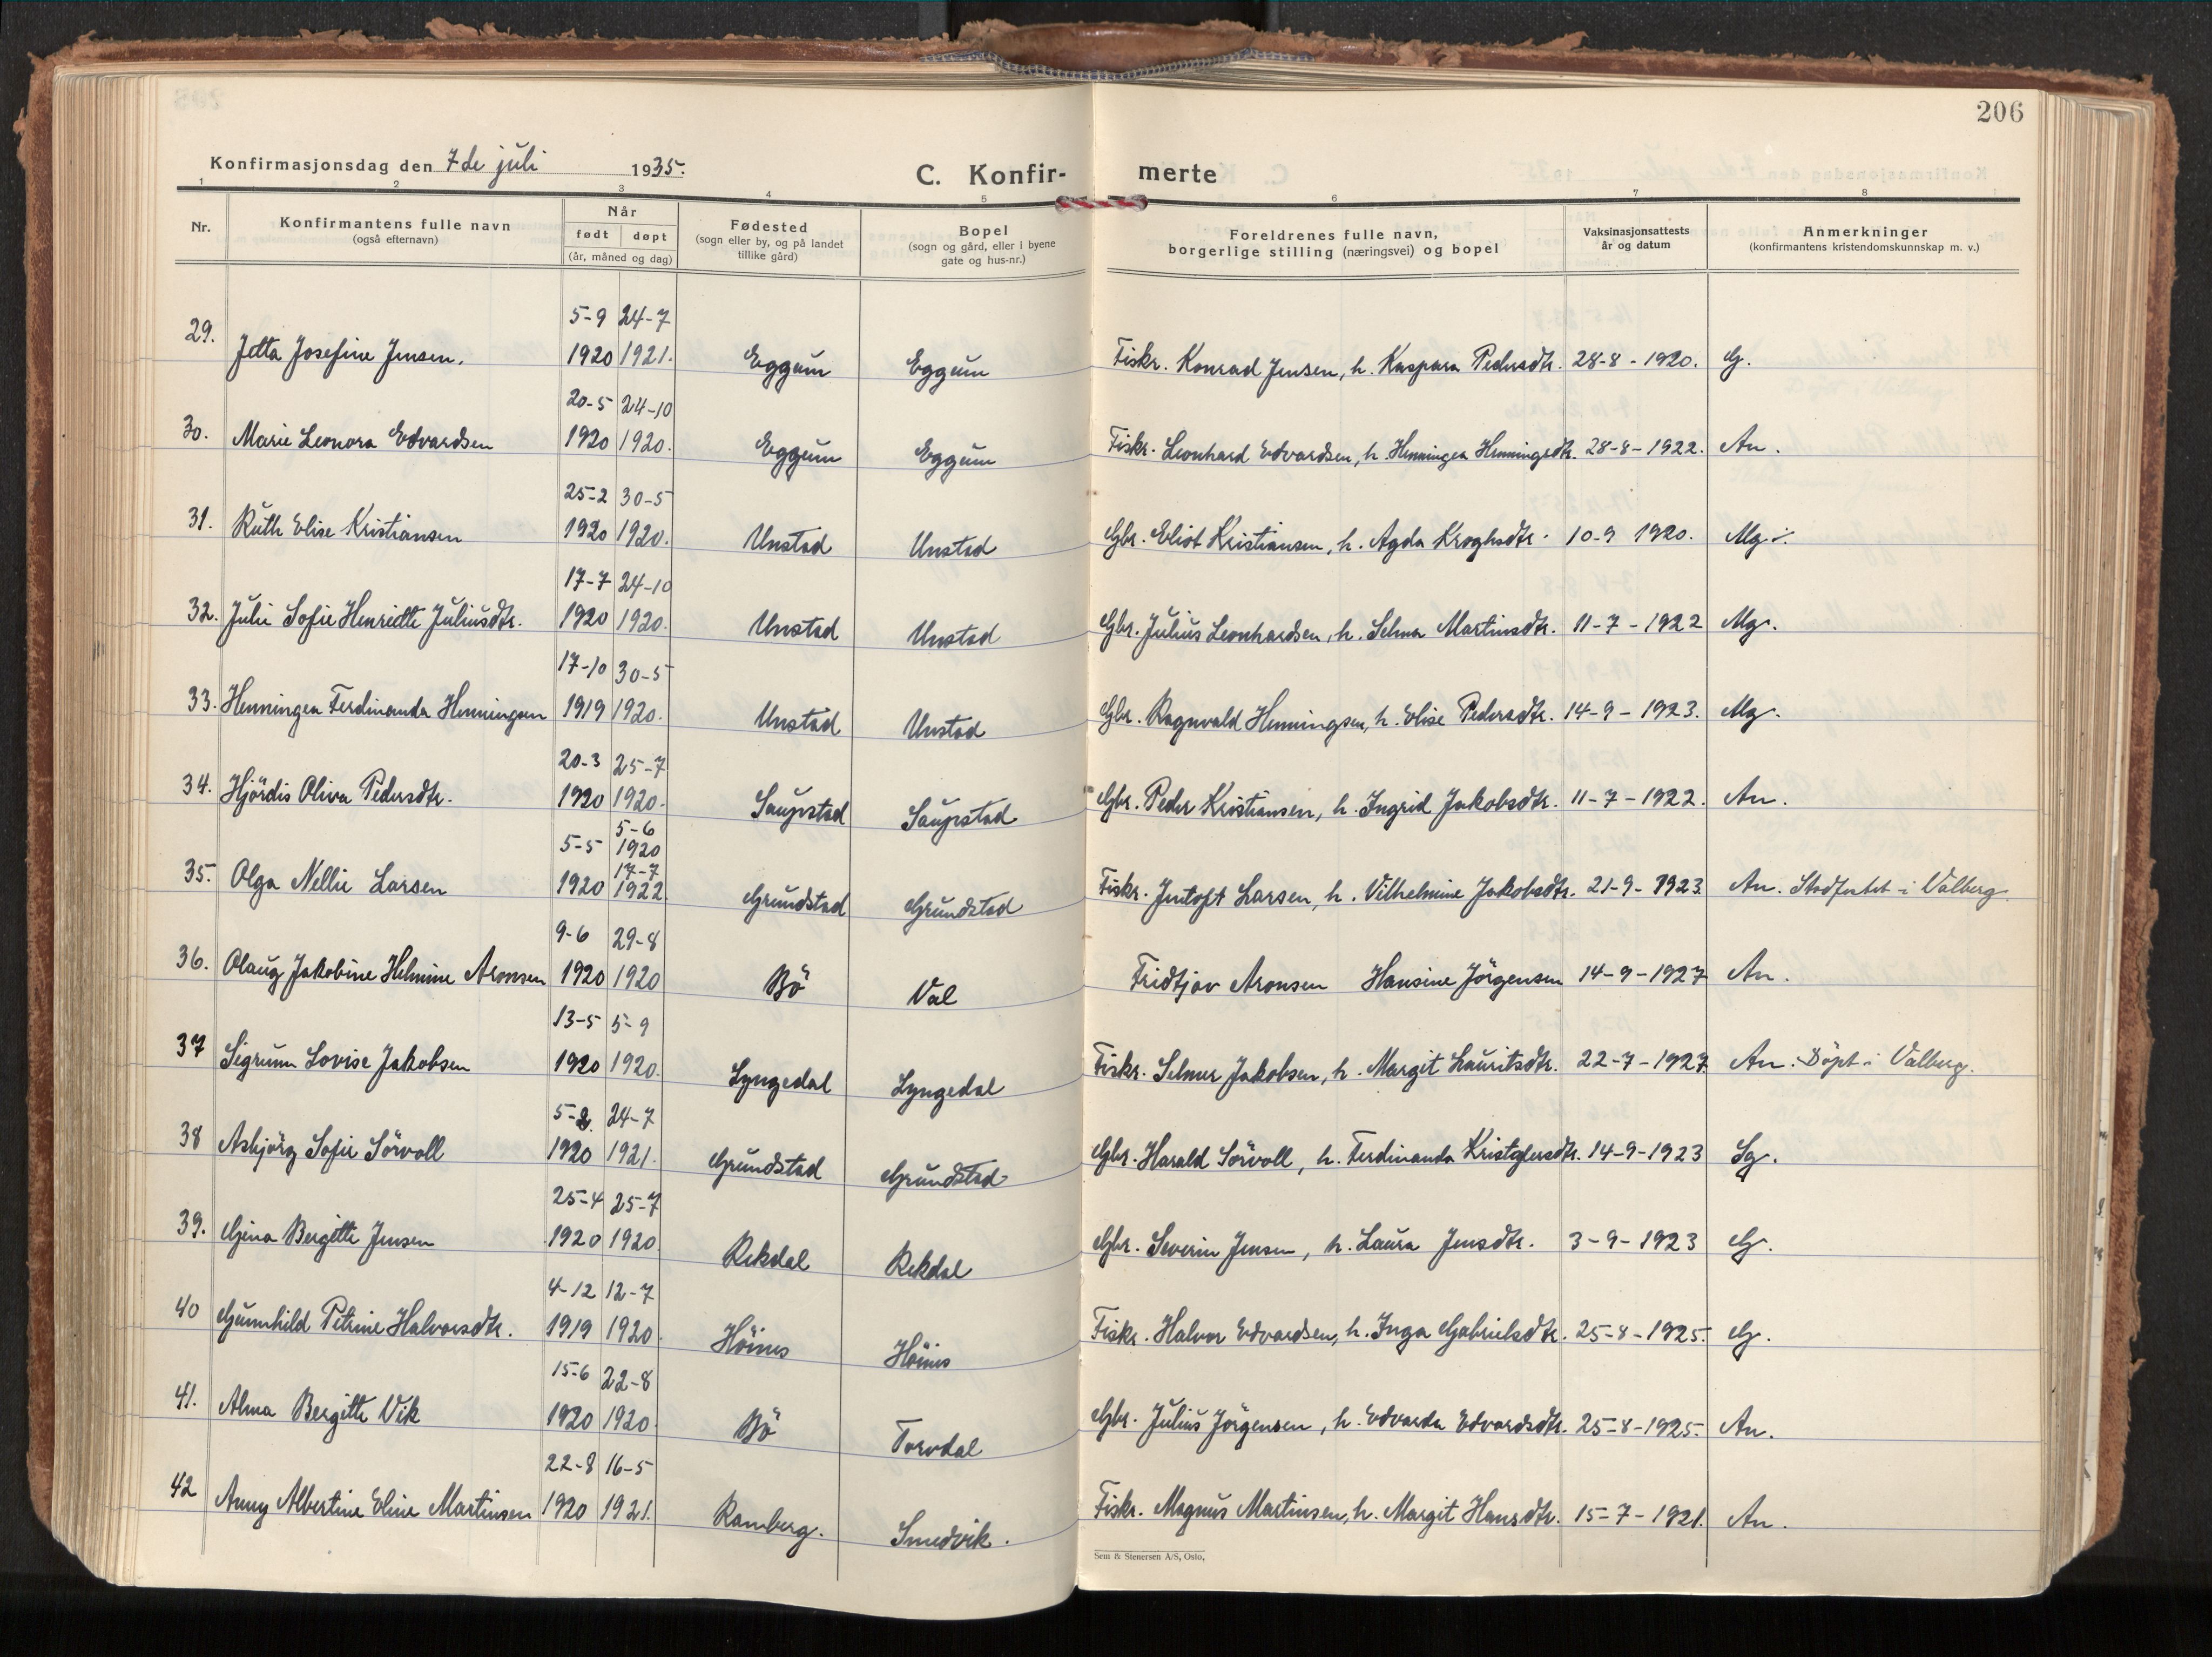 206
Konfirmasjonsdag den 7de juli 1935.
C. Konfir- merte
1 2 3 4 5 6 7 8
Nr. Konfirmantens fulle navn (også efternavn) Når født døpt (år, måned og dag) Fødested (sogn eller by, og på landet tillike gård) Bopel (sogn og gård, eller i byene gate og hus-nr.) Foreldrenes fulle navn, borgerlige stilling (næringsvei) og bopel Vaksinasjonsattests år og datum Anmerkninger (konfirmantens kristendomskunnskap m. v.)
5-9 24-7
29. Jetta Josefine Jensen. 1920 1921. Eggum Eggum Fiskr. Konrad Jensen, h. Kaspara Pedersdtr. 28-8-1920. G.
20-5 24-10
30. Marie Leonora Edvardsen 1920 1920. Eggum Eggum Fiskr. Leonhard Edvardsen, h. Henningea Henningsdtr. 28-8-1922. An.
25-2 30-5
31. Ruth Elise Kristiansen 1920 1920. Unstad Unstad Gbr. Eliot Kristiansen, h. Agda Kroghsdtr. 10-9 1920. Mg.
17-7 24-10
32. Julie Sofie Henriette Juliusdtr. 1920 1920. Unstad Unstad Gbr. Julius Leonhardsen, h. Selma Martinsdtr. 11-7-1922 Mg.
17-10 30-5
33. Henningea Ferdinanda Henningsen 1919 1920. Unstad Unstad Gbr. Ragnvald Henningsen, h. Elise Pedersdtr. 14-9-1923. Mg.
20-3 25-7
34. Hjördis Oliva Pedersdtr. 1920 1920. Saupstad Saupstad Gbr. Peder Kristiansen, h. Ingrid Jakobsdtr. 11-7-1922. An.
5-5 5-6 1920
35. Olga Nellie Larsen 1920 17-7 1922 Grundstad Grundstad Fiskr. Jentoft Larsen, h. Vilhelmine Jakobsdtr. 21-9-1923. An. Stadfestet i Valberg.
9-6 29-8
36. Olaug Jakobine Helmine Aronsen 1920 1920 Bö Val Fridtjov Aronsen Hansine Jörgensen 14-9-1927 An.
13-5 5-9
37 Sigrunn Lovise Jakobsen 1920 1920. Lyngedal Lyngedal Fiskr. Selmer Jakobsen, h. Margit Lauritsdtr. 22-7-1927. An. Döpt i Valberg.
5-2. 24-7
38 Asbjörg Sofie Sörvoll 1920 1921. Grundstad Grundstad Gbr. Harald Sörvoll, h. Ferdinanda Kristofersdtr. 14-9-1923 Sg.
25-4 25-7
39. Gina Bergitte Jensen 1920 1920 Rekdal Rekdal Gbr. Severin Jensen, h. Laura Jensdtr. 3-9-1923 G.
4-12 12-7
40 Gunnhild Petrine Halvorsdtr. 1919 1920. Höines Höines Fiskr. Halvor Edvardsen, h. Inga Gabrielsdtr. 25-8-1925. G.
15-6 22-8
41. Alma Bergitte Vik 1920 1920. Bö Torvdal Gbr. Julius Jörgensen, h. Edvarda Edvardsdtr. 25-8-1925. An.
22-8 16-5
42 Anny Albertine Eline Martinsen 1920 1921. Ramberg. Smedvik. Fiskr. Magnus Martinsen, h. Margit Hansdtr. 15-7-1921. An.
Sem & Stenersen A/S, Oslo,